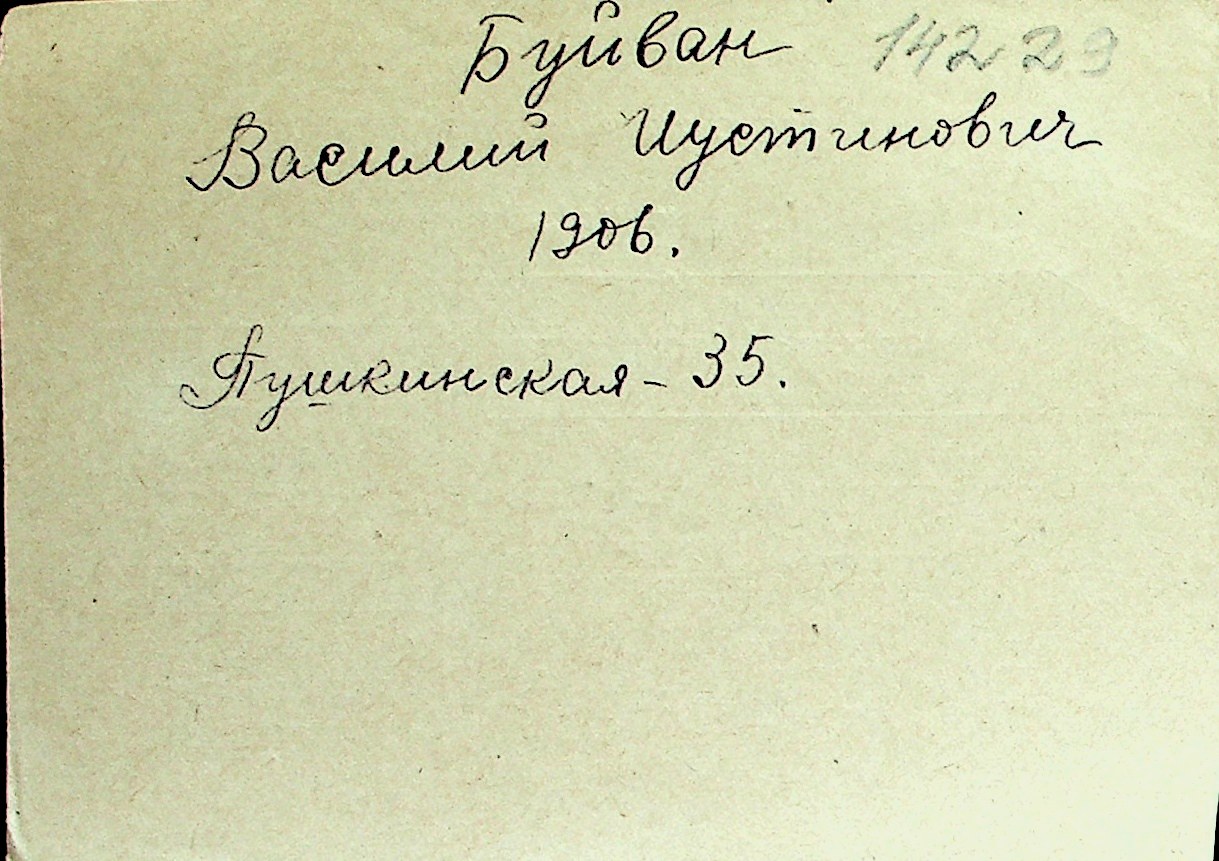 Буйван 14229
Василий Иустинович
1906.
Пушкинская - 35.